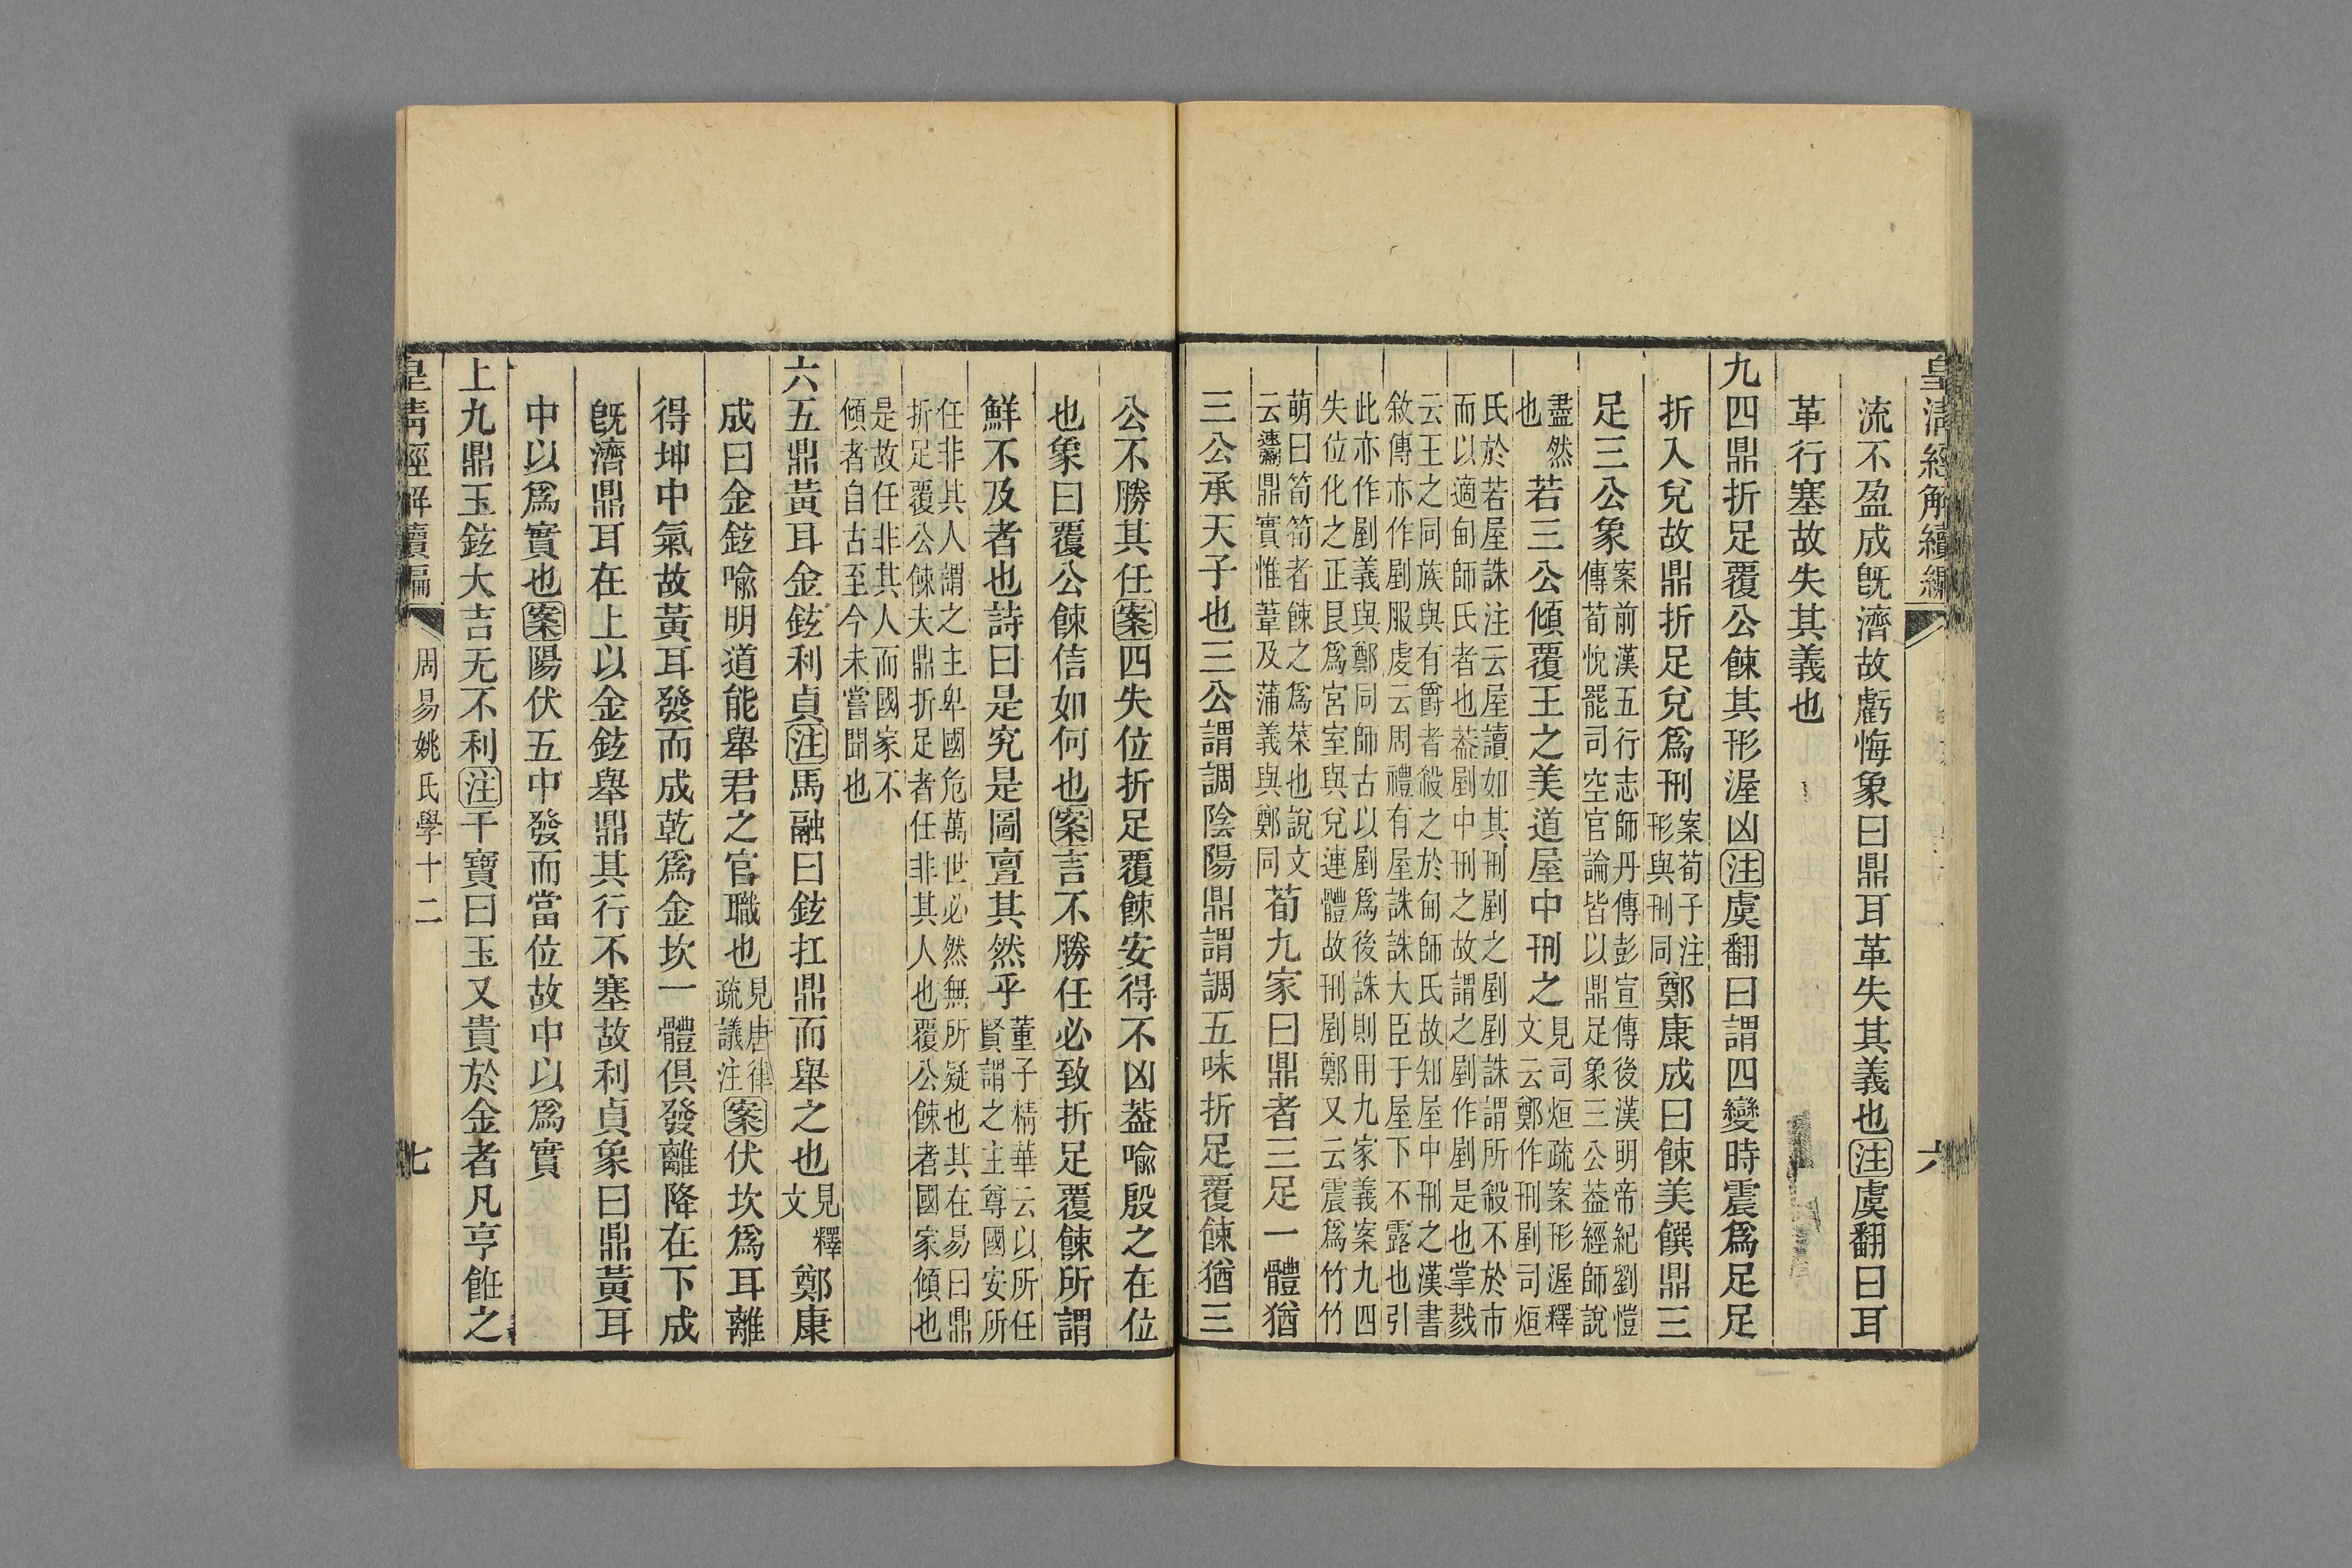 皇清經解續編
六
流不盈成旣濟故虧悔象曰鼎耳革失其義也注虞翻曰耳
革行塞故失其義也
九四鼎折足覆公餗其形渥凶注虞翻曰謂四變時震爲足足
折入兌故鼎折足兌爲刑案荀子注形與刑同鄭康成曰餗美饌鼎三
足三公象案前漢五行志師丹傳彭宣傳後漢明帝紀劉愷傳荀悅罷司空官論皆以鼎足象三公葢經師說
盡然也若三公傾覆王之美道屋中刑之見司烜疏案形渥釋文云鄭作刑剭司烜
氏於若屋誅注云屋讀如其刑剭之剭剭誅謂所殺不於市而以適甸師氏者也葢剭中刑之故謂之剭作剭是也掌戮
云王之同族與有爵者殺之於甸師氏故知屋中刑之漢書敘傳亦作剭服虔云周禮有屋誅誅大臣于屋下不露也引
此亦作剭義與鄭同師古以剭爲後誅則用九家義案九四失位化之正艮爲宮室與兌連體故刑剭鄭又云震爲竹竹
萌曰筍筍者餗之爲菜也說文云速鬻鼎實惟葦及蒲義與鄭同荀九家曰鼎者三足一體猶
三公承天子也三公謂調陰陽鼎謂調五味折足覆餗猶三
公不勝其任案四失位折足覆餗安得不凶葢喩殷之在位
也象曰覆公餗信如何也案言不勝任必致折足覆餗所謂
鮮不及者也詩曰是究是圖亶其然乎董子精華云以所任賢謂之主尊國安所
任非其人謂之主卑國危萬世必然無所疑也其在易曰鼎折足覆公餗夫鼎折足者任非其人也覆公餗者國家傾也
是故任非其人而國家不傾者自古至今未嘗聞也
六五鼎黃耳金鉉利貞注馬融曰鉉扛鼎而舉之也見釋文鄭康
成曰金鉉喩明道能舉君之官職也見唐律疏議注案伏坎爲耳離
得坤中氣故黃耳發而成乾爲金坎一體俱發離降在下成
旣濟鼎耳在上以金鉉舉鼎其行不塞故利貞象曰鼎黃耳
中以爲實也案陽伏五中發而當位故中以爲實
上九鼎玉鉉大吉无不利注干寶曰玉又貴於金者凡亨飪之
皇清經解續編
周易姚氏學十二
七